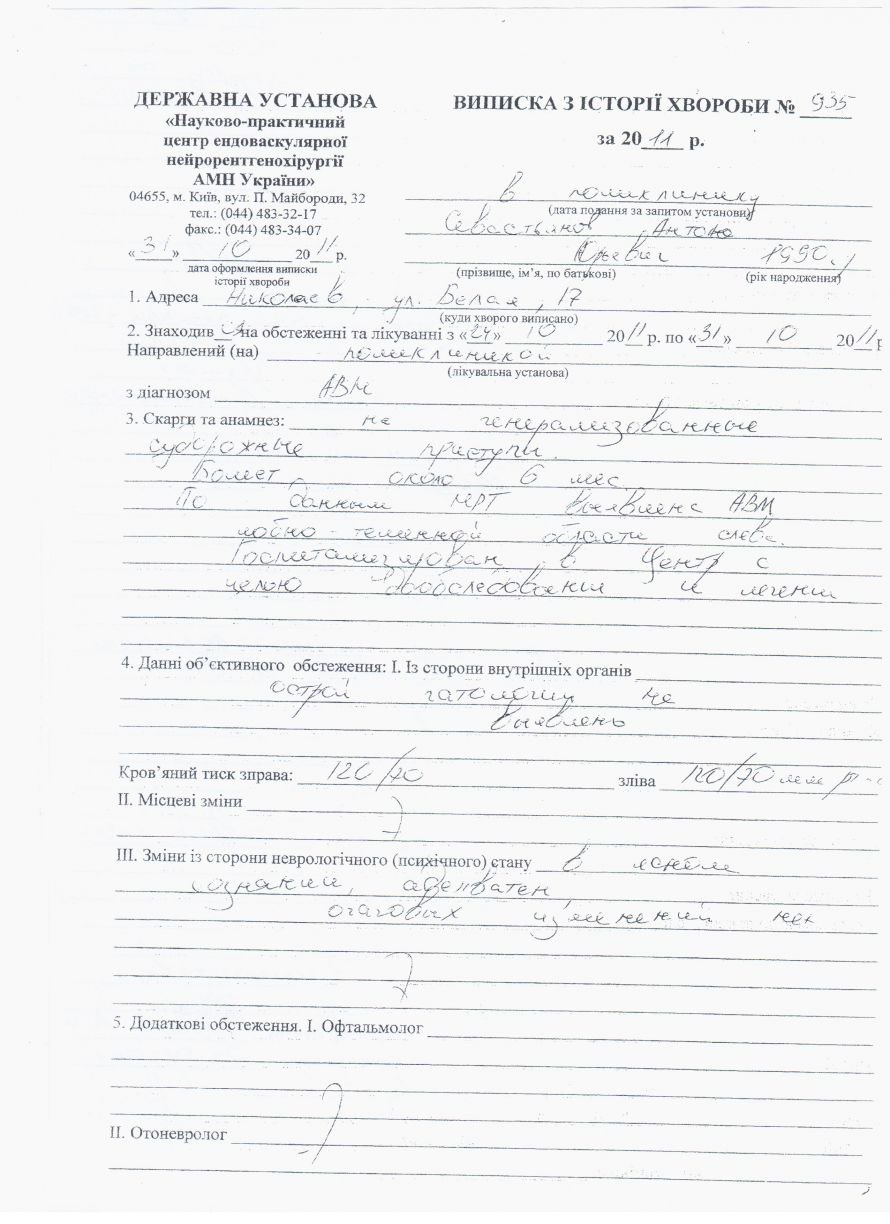 ДЕРЖАВНА УСТАНОВА
«Науково-практичний
центр ендоваскулярної
нейрорентгенохірургії
АМН України»
04655, м. Київ, вул. П. Майбороди, 32
тел.: (044) 483-32-17
факс.: (044) 483-34-07
«31» 10 2011 р.
дата оформлення виписки
історії хвороби
ВИПИСКА З ІСТОРІЇ ХВОРОБИ № 935
за 2011 р.
в поликлинику
(дата подання за запитом установи)
Севастьянов Антон
1990 г.
(прізвище, ім’я, по батькові) (рік народження)
1. Адреса Николаев, ул. Белая, 17
(куди хворого виписано)
2. Знаходив ся на обстеженні та лікуванні з «24» 10 2011 р. по «31» 10 2011 р
Направлений (на) поликлиникой
(лікувальна установа)
з діагнозом АВМ
3. Скарги та анамнез: на генерализованные
судорожные приступы.
Болеет около 6 мес.
По данным МРТ выявлена АВМ
лобно-теменной области слева.
Госпитализирован в Центр с
целью дообследования и лечения
4. Данні об’єктивного обстеження: I. Із сторони внутрішніх органів
острой патологии не
выявлено
Кров’яний тиск зправа: 120/70 зліва 120/70 мм р
II. Місцеві зміни
III. Зміни із сторони неврологічного (психічного) стану в ясном
сознании, адекватен
очаговых изменений нет
5. Додаткові обстеження. I. Офтальмолог
II. Отоневролог